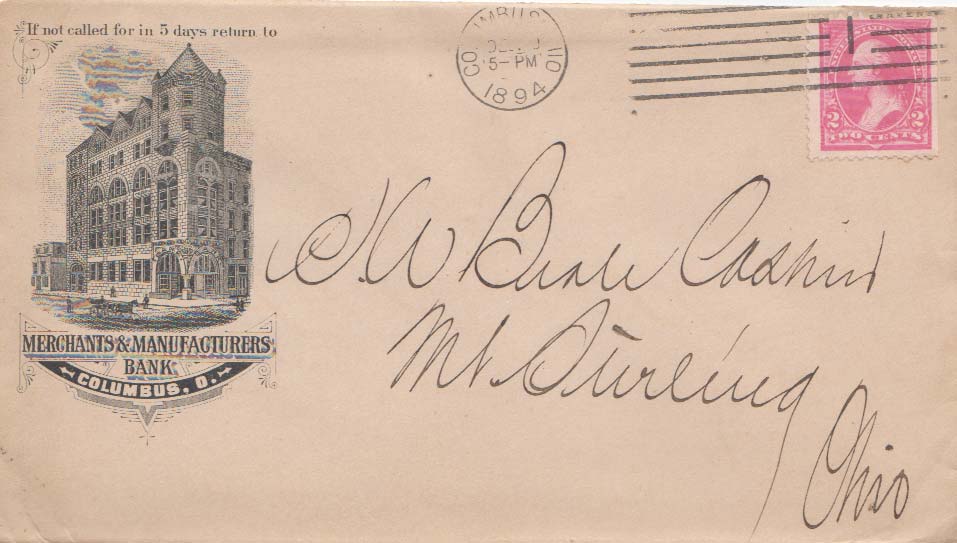 If not called for in 5 days return to
MERCHANTS & MANUFACTURERS'
BANK
COLUMBUS, O.
COLUMBUS OHIO
5-PM
1894
1
2 2
TWO CENTS
Beale Cashier
Mt. Sterling
Ohio